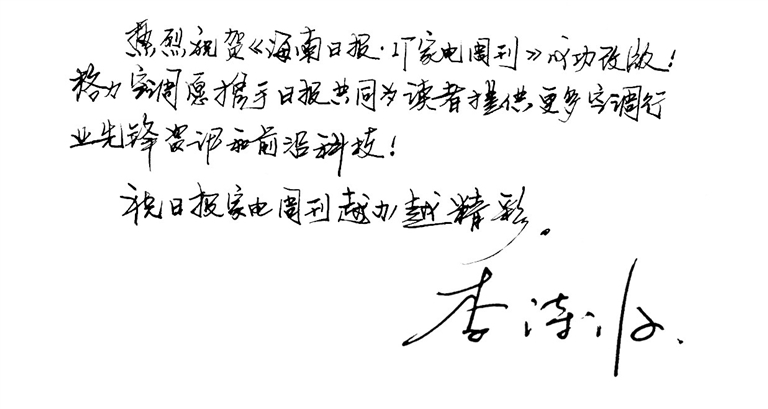 热烈祝贺《海南日报·IT家电周刊》成功改版！
格力空调愿携手日报共同为读者提供更多空调行
业先锋资讯和前沿科技！
祝日报家电周刊越办越精彩。
李